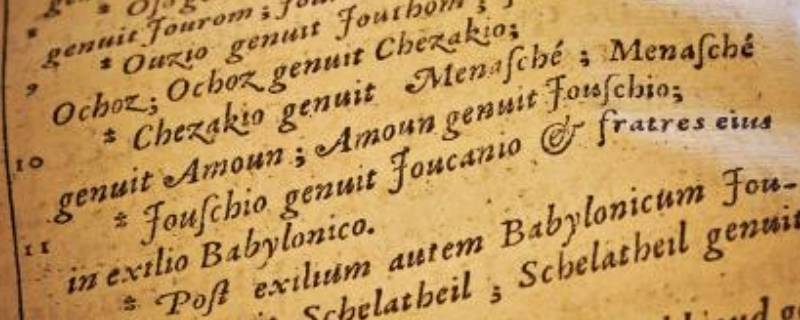 genuit Jourom;
* Ouzio genuit Jouthom;
9 Ochoz; Ochoz genuit Chezakio;
* Chezakio genuit Menaſché; Menaſché
10 genuit Amoun; Amoun genuit Jouſchio;
* Jouſchio genuit Joucanio & fratres eius
11 in exilio Babylonico.
* Poſt exilium autem Babylonicum Jou-
Schelatheil; Schelatheil genuit